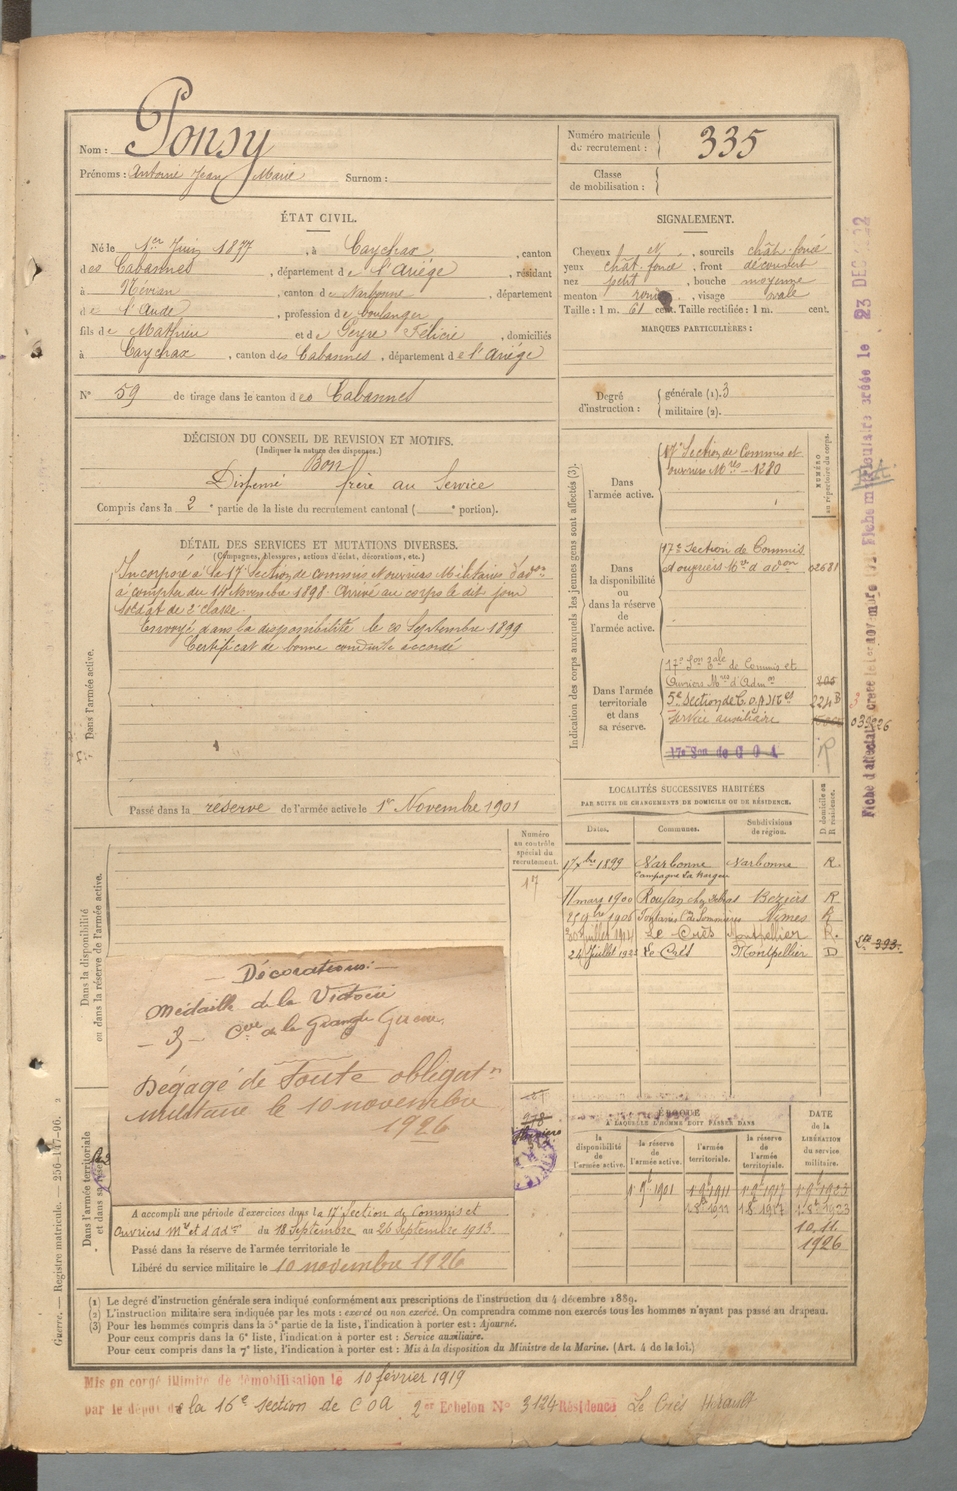 Nom : Ponsy
Prénoms : Antoine Jean Marie Surnom :
Numéro matricule du recrutement : 335
Classe de mobilisation :
ÉTAT CIVIL.
Né le 1er Juin 1877, à Caychax, canton
des Cabannes, département de l'Ariège, résidant
à Névian, canton de Narbonne, département
de l'Aude, profession de boulanger
fils de Mathieu et de Seyre Félicie, domiciliés
à Caychax, canton des Cabannes, département de l'Ariège
N° 59 de tirage dans le canton des Cabannes
SIGNALEMENT.
Cheveux et, sourcils chât. foncé
yeux chât. foncé, front découvert
nez petit, bouche moyenne
menton rond, visage ovale
Taille : 1 m. 61 cent. Taille rectifiée : 1 m. cent.
MARQUES PARTICULIÈRES :
Degré d'instruction : générale (1). 3
militaire (2).
DÉCISION DU CONSEIL DE REVISION ET MOTIFS.
(Indiquer la nature des dispenses.)
Bon
Dispensé frère au Service
Compris dans la 2e partie de la liste du recrutement cantonal ( e portion).
DÉTAIL DES SERVICES ET MUTATIONS DIVERSES.
(Campagnes, blessures, actions d'éclat, décorations, etc.)
Dans l'armée active.
Incorporé à la 17e Section de commis & ouvriers Militaires d'adon
à compter du 14 Novembre 1898. Arrivé au corps le dit jour
soldat de 2e classe.
Envoyé dans la disponibilité le 20 Septembre 1899
Certificat de bonne conduite accordé
Passé dans la réserve de l'armée active le 1er Novembre 1901
Indication des corps auxquels les jeunes gens sont affectés (3).
NUMÉRO au répertoire du corps.
Dans l'armée active.
17e Section de Commis et
ouvriers Mres - 1280
Dans la disponibilité ou dans la réserve de l'armée active.
17e Section de Commis
et ouvriers Mre d'adon 02681
Dans l'armée territoriale et dans sa réserve.
17e Son Tale de Commis et
Ouvriers Mres d'Admon
5e Section de C.O.A.
service auxiliaire
17e Son de C O A
R
LOCALITÉS SUCCESSIVES HABITÉES
PAR SUITE DE CHANGEMENTS DE DOMICILE OU DE RÉSIDENCE.
Dates. Communes. Subdivisions de région. D domicile ou R résidence.
17 xbre 1899 Narbonne Narbonne R.
11 mars 1900 Roujan Béziers R
25 9bre 1906 Nîmes R
30 juillet 1914 Le Crès Montpellier R.
24 Juillet Le Crès Montpellier D
Dans la disponibilité ou dans la réserve de l'armée active.
Numéro au contrôle spécial du recrutement.
17
- Décorations: -
Médaille de la Victoire
- d - Cve de la Grande Guerre.
Dégagé de toute obligatn
militaire le 10 novembre
1926
Dans l'armée territoriale et dans sa réserve.
A accompli une période d'exercices dans la 17e Section de Commis et
Ouvriers Mre et d'adon du 18 Septembre au 26 Septembre 1913.
Passé dans la réserve de l'armée territoriale le
Libéré du service militaire le 10 novembre 1926
ÉPOQUE
A LAQUELLE L'HOMME DOIT PASSER DANS
la disponibilité de l'armée active. la réserve de l'armée active. l'armée territoriale. la réserve de l'armée territoriale.
DATE de la LIBÉRATION du service militaire.
1 9b 1901 1 9b 1911 1 9b 1917 1 9b 1923
1 8b 1911 1 8b 1917 1 8b 1923
10.11.
1926
(1) Le degré d'instruction générale sera indiqué conformément aux prescriptions de l'instruction du 4 décembre 1889.
(2) L'instruction militaire sera indiquée par les mots : exercé ou non exercé. On comprendra comme non exercés tous les hommes n'ayant pas passé au drapeau.
(3) Pour les hommes compris dans la 5e partie de la liste, l'indication à porter est : Ajourné.
Pour ceux compris dans la 6e liste, l'indication à porter est : Service auxiliaire.
Pour ceux compris dans la 7e liste, l'indication à porter est : Mis à la disposition du Ministre de la Marine. (Art. 4 de la loi.)
Guerre. — Registre matricule. — 256-147-96.
Mis en congé illimité de démobilisation le 10 février 1919
par le dépôt de la 16e section de COA 2er Echelon N° 3124 Résidence Le Crès Hérault